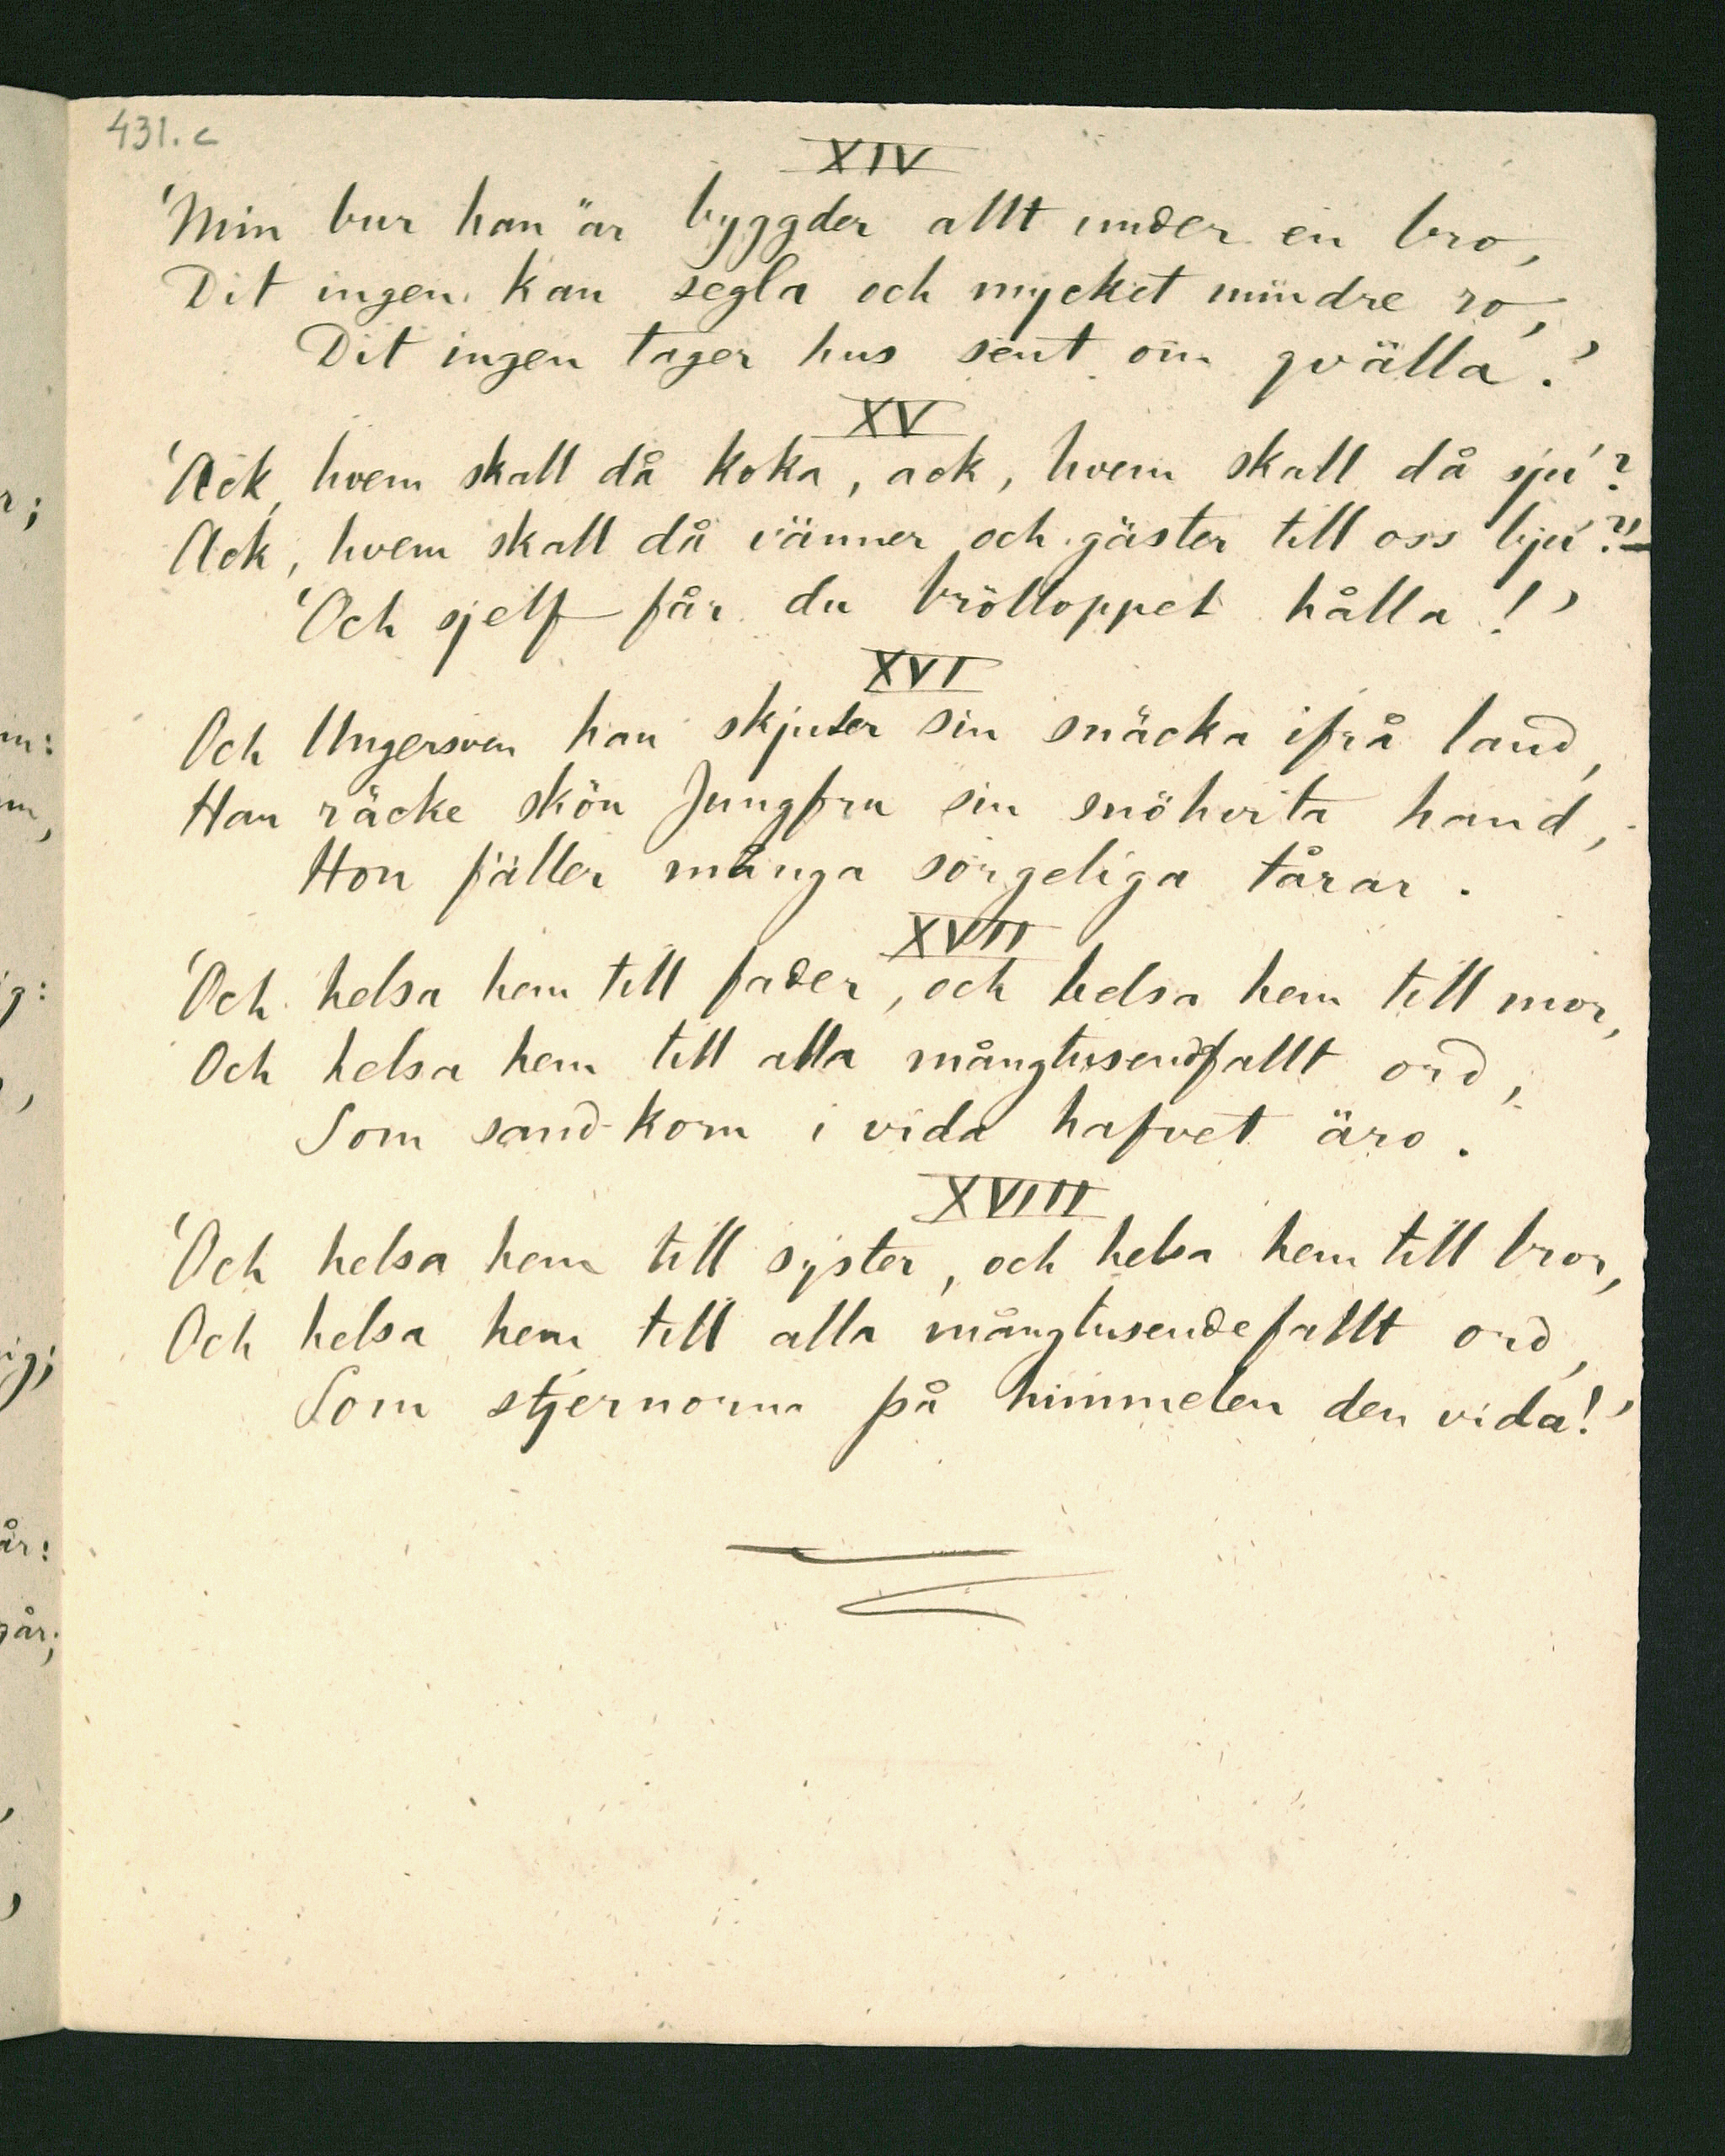 431. c
XIV
'Min bur han är byggder allt under en bro,
Dit ingen kan segla och mycket mindre ro,
Dit ingen tager hus sent om qvälla.'
XV
'Ack, hvem skall då koka, ack, hvem skall då sju'?
Ack, hvem skall då vänner och gäster till oss bju'?'—
'Och sjelf får du brölloppet hålla!'
XVI
Och Ungersven han skjuter sin snäcka ifrå land,
Han räcke skön Jungfru sin snöhvita hand,
Hon fäller många sorgeliga tårar.
XVII
'Och helsa hem till fader, och helsa hem till mor,
Och helsa hem till alla mångtusendfallt ord,
Som sand-korn i vida hafvet äro.
XVIII
'Och helsa hem till syster, och helsa hem till bror,
Och helsa hem till alla mångtusendefallt ord,
Som stjernorna på himmelen den vida!'
r;
m:
m,
ig:
,
ig;
år:
går;
,
,